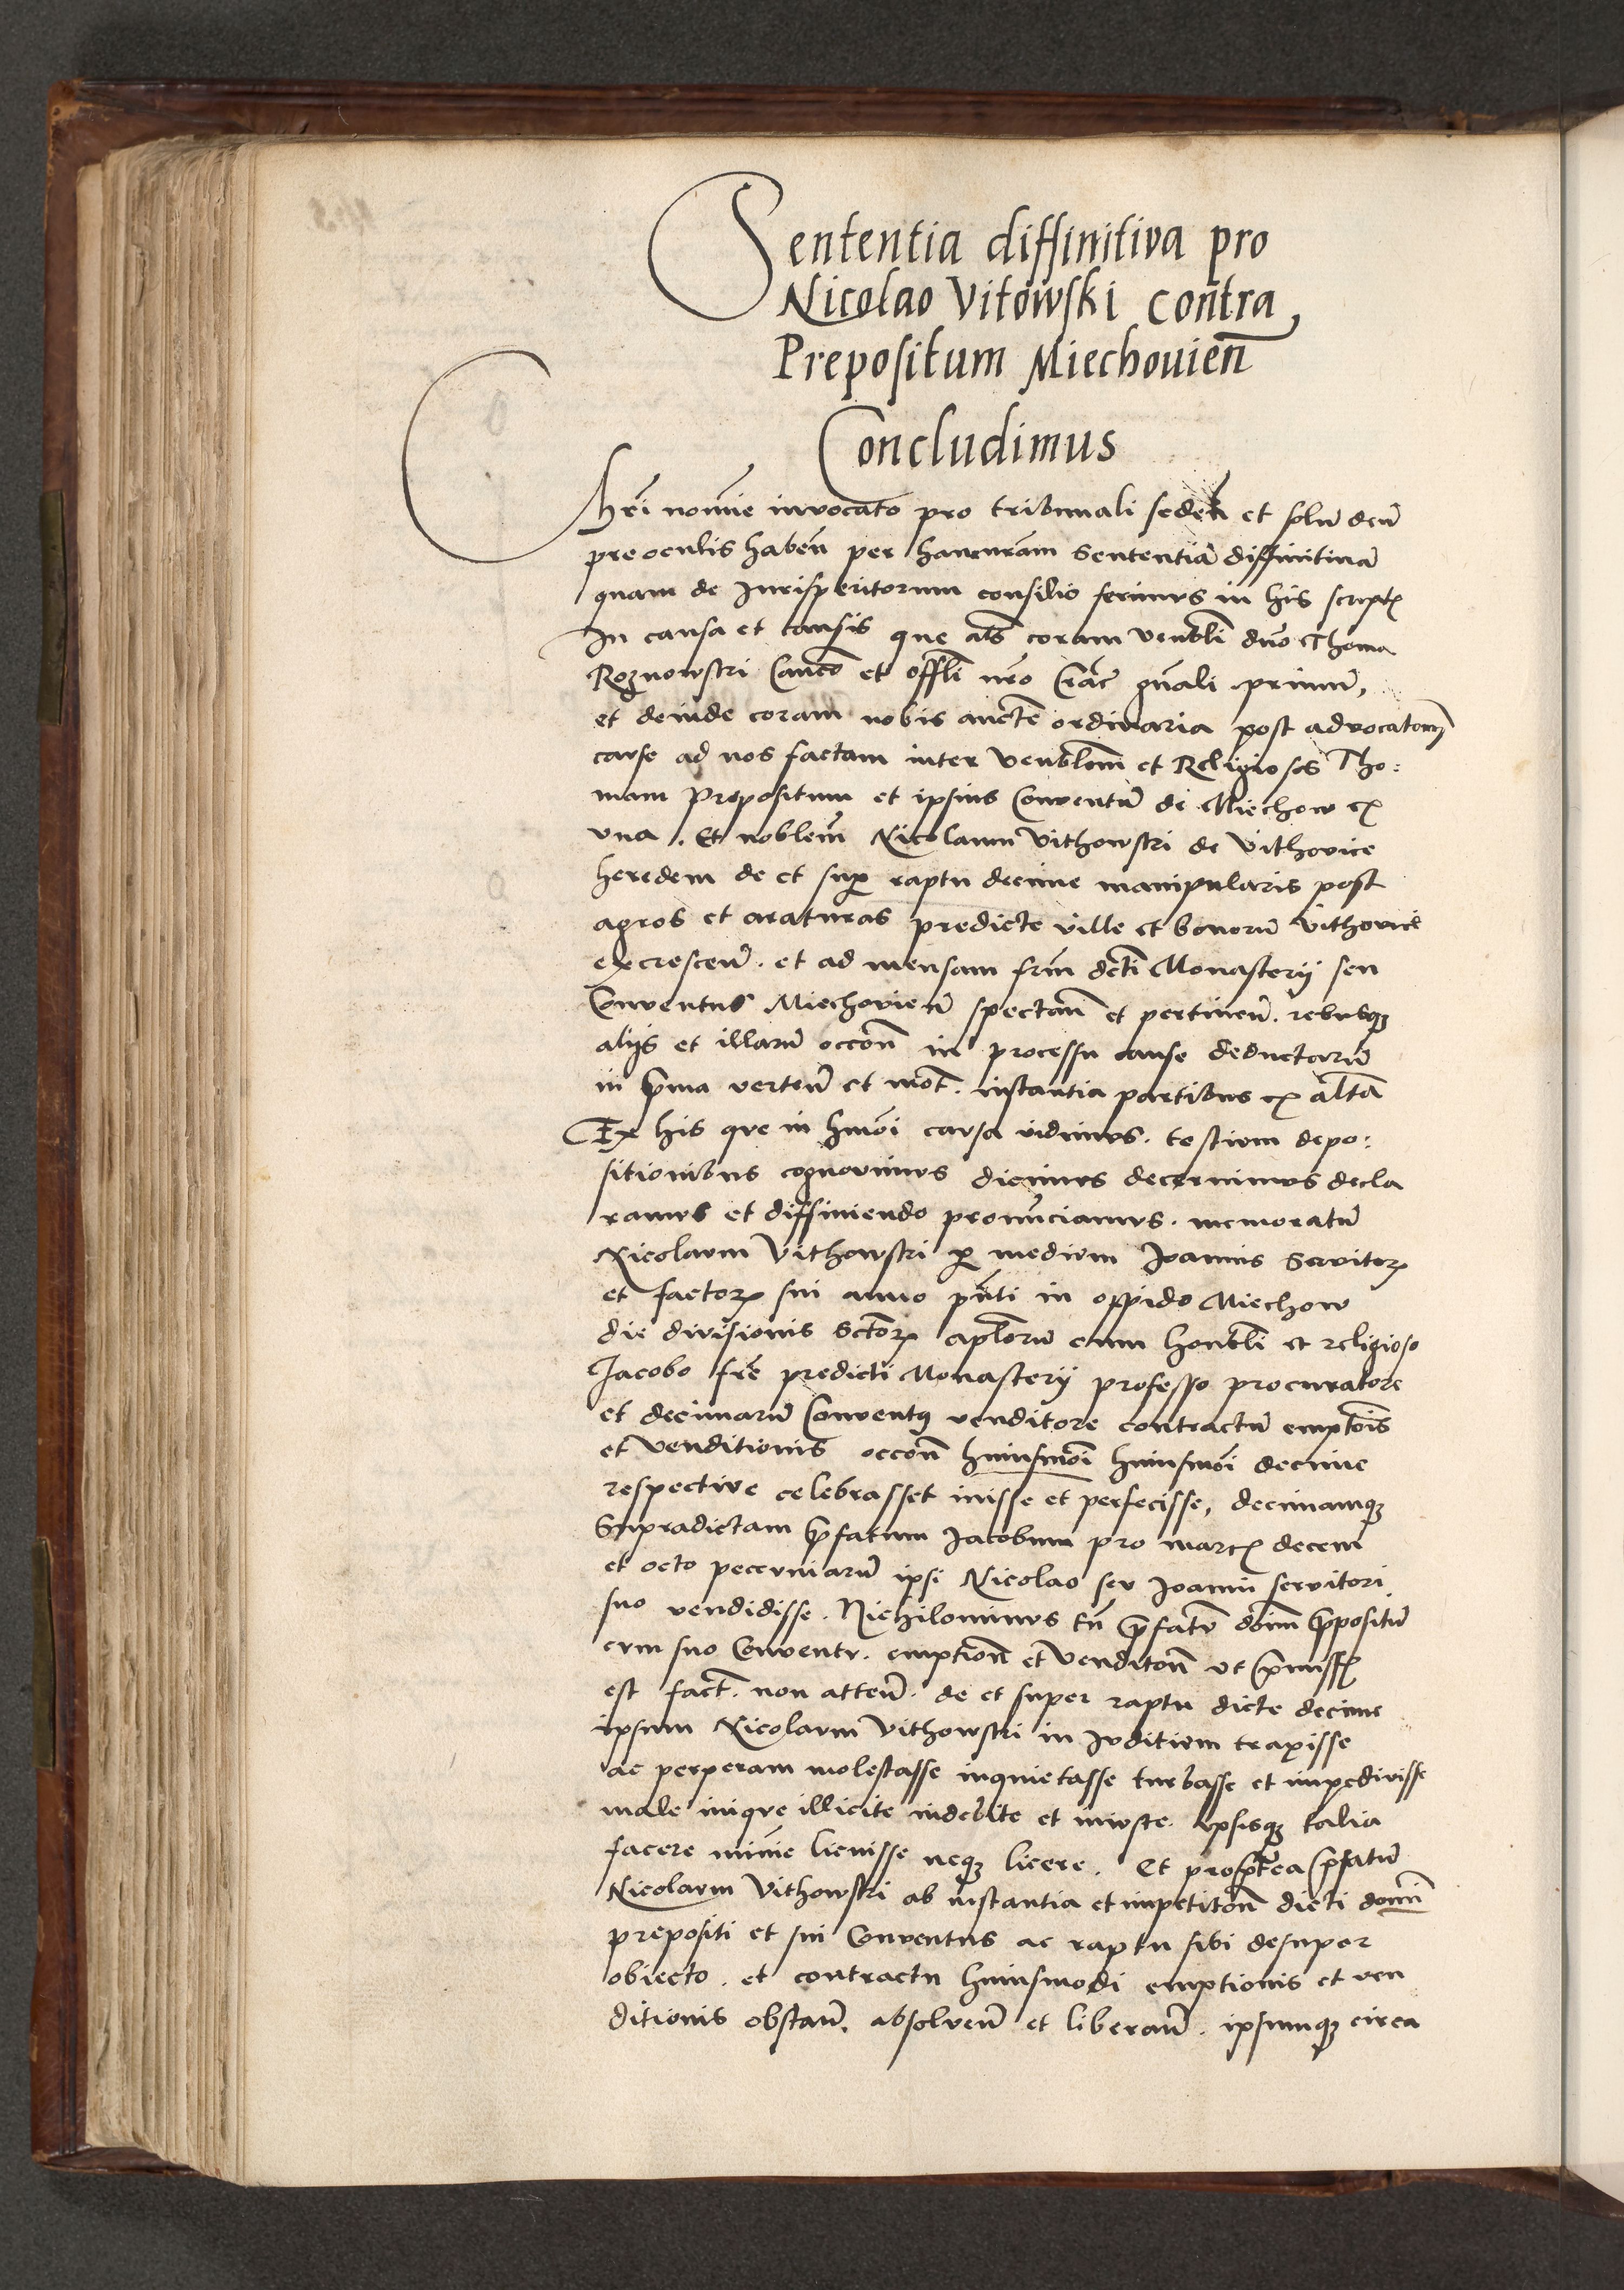 Sententia diffinitiva pro
Nicolao Vitowski contra
Prepositum Miechouien̄
Concludimus
Chr̄i nomīe invocato pro tribunali seden̄ et solū deū
pre oculis haben̄ per hanc nr̄am Sententiā diffinitiuā
quam de Jurisperitorum consilio ferimus in his scriptꝭ
In causa et causis que als̄ coram Venbl̄i dn̄o Thoma
Roznowski Canco᷑ et Offl̄i nr̄o Crac̄ gn̄ali primū,
et deinde coram nobis auctē ordinaria post advocatōnꝫ
cause ad nos factam inter Venbl̄em et Religiosos Tho:
mam Prepositum et ipsius Conventū de Miechow ex
vna. Et noblem̄ Nicolaum Vithowski de Vithovice
heredem de et suꝑ raptu decime manipularis post
agros et araturas predicte ville et bonorū Vithovice
excrescen̄. et ad mensam frm̄ dc̄ti Monasterij seu
Conventus Miechovien̄ spectan̄ et pertinen̄. rebusqꝫ
alijs et illarū occon̄ in processu cause deductarū
in p̄ma verten̄ et mot̄. instantia partibus ex alt̄a
Ex his que in hmōi causa vidimus. testium depo:
sitionibus cognovimus dicimus decernimus decla
ramus et diffiniendo pronūciamus. memoratū
Nicolaum Vithowski ꝑ medium Joannis Servitorꝭ
et factorꝭ sui anno pn̄ti in oppido Miechow
die divisionis Sctōrꝝ aplōrū cum honbl̄i et religioso
Jacobo fr̄e predicti Monasterij professo procuratore
et decimarū Conventꝰ venditore contractū emptōis
et Venditionis occon̄ huiusmōi huiusmōi decime
respective celebrasset inisse et perfecisse, decimamqꝫ
Supradictam p̄fatum Jacobum pro marcꝭ decem
et octo pecuniarū ipsi Nicolao seu Joanni servitori
suo vendidisse. Nichilominus tn̄ p̄fatū dom̄ p̄positū
cum suo Conventu. emption̄ et Venditōn̄ ut p̄missꝭ
est fact̄. non atten̄. de et super raptu dicte decime
ipsum Nicolaum Vithowski in Juditium traxisse
ac perperam molestasse inquietasse turbasse et impedivisse
male inique illicite indebite et iniuste. ipsisqꝫ talia
facere minīe licuisse neqꝫ licere. Et propt̄ea p̄fatū
Nicolaum Vithowski ab instantia et impetitōn̄ dicti domi᷑
prepositi et sui Conventus ac raptu sibi desuper
obiecto. et contractu huiusmodi emptionis et ven
ditionis obstan̄. absolven̄ et liberan̄. ipsumqꝫ circa